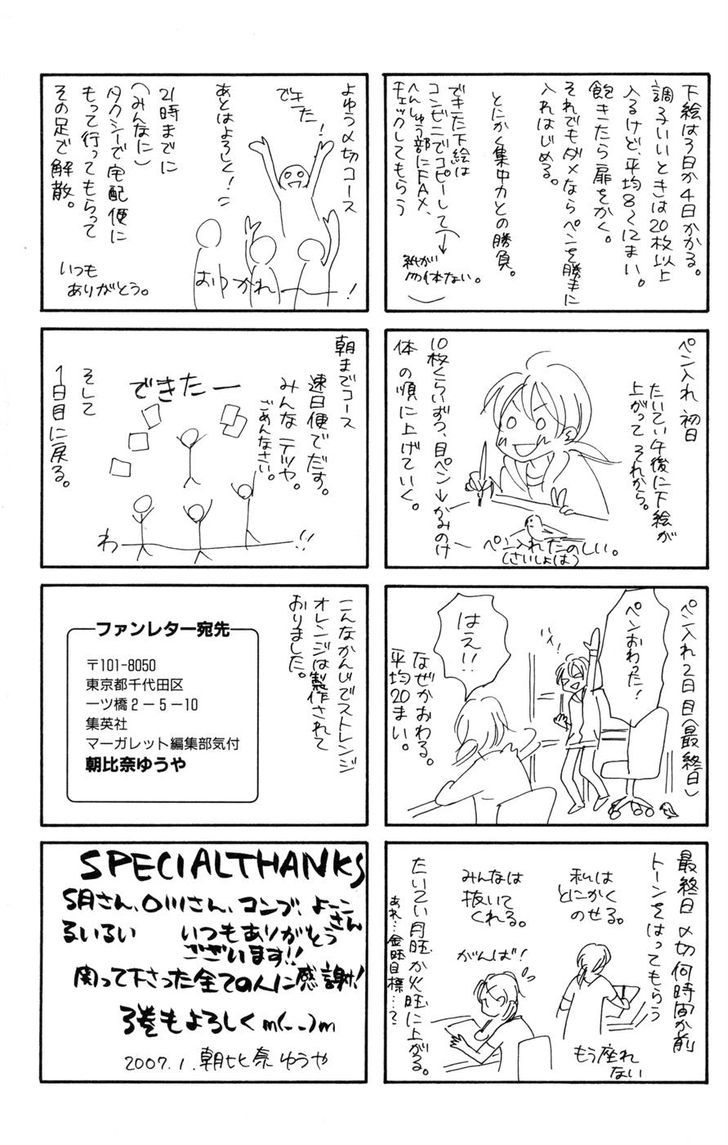 下絵は3日か4日かかる。
調子いいときは20枚以上
入るけど、平均8〜12まい。
飽きたら扉をかく。
それでもダメならペンを勝手に
入れはじめる。
とにかく集中力との勝負。
できた下絵は
コンビニでコピーして→紙が勿体ない。
へんしゅう部にFAX、
チェックしてもらう
ペン入れ 初日
たいてい午後に下絵が
上がって それから。
10枚くらいずつ、目ペン→かみのけ
体の順に上げていく。
ペン入れたのしい。
(さいしょは)
ペン入れ2日目(最終日)
ペンおわった!
はえ!!
なぜかおわる。
平均20まい。
最終日 〆切何時間か前
トーンをはってもらう
私は
とにかく
のせる。
みんなは
抜いて
くれる。
がんば!
もう座れ
ない
たいてい月旺か火旺に上がる。
あれ…金旺目標…?
よゆう〆切コース
できた!
あとはよろしく!
21時までに
(みんなに)
タクシーで宅配便に
もって行ってもらって
その足で解散。
おつかれー!
いつも
ありがとう。
朝までコース
速日便でだす。
みんなテツヤ。
ごめんなさい。
できたー
わー!!
そして
1日目に戻る。
こんなかんじでストレンジ
オレンジは製作されて
おりました。
ファンレター宛先
〒101-8050
東京都千代田区
一ツ橋2-5-10
集英社
マーガレット編集部気付
朝比奈ゆうや
SPECIALTHANKS
S月さん、O川さん、コンブ、よーこさん
るいるい いつもありがとう
ございます!!
関って下さった全ての人に感謝!
3巻もよろしくm(_ _)m
2007.1. 朝比奈ゆうや